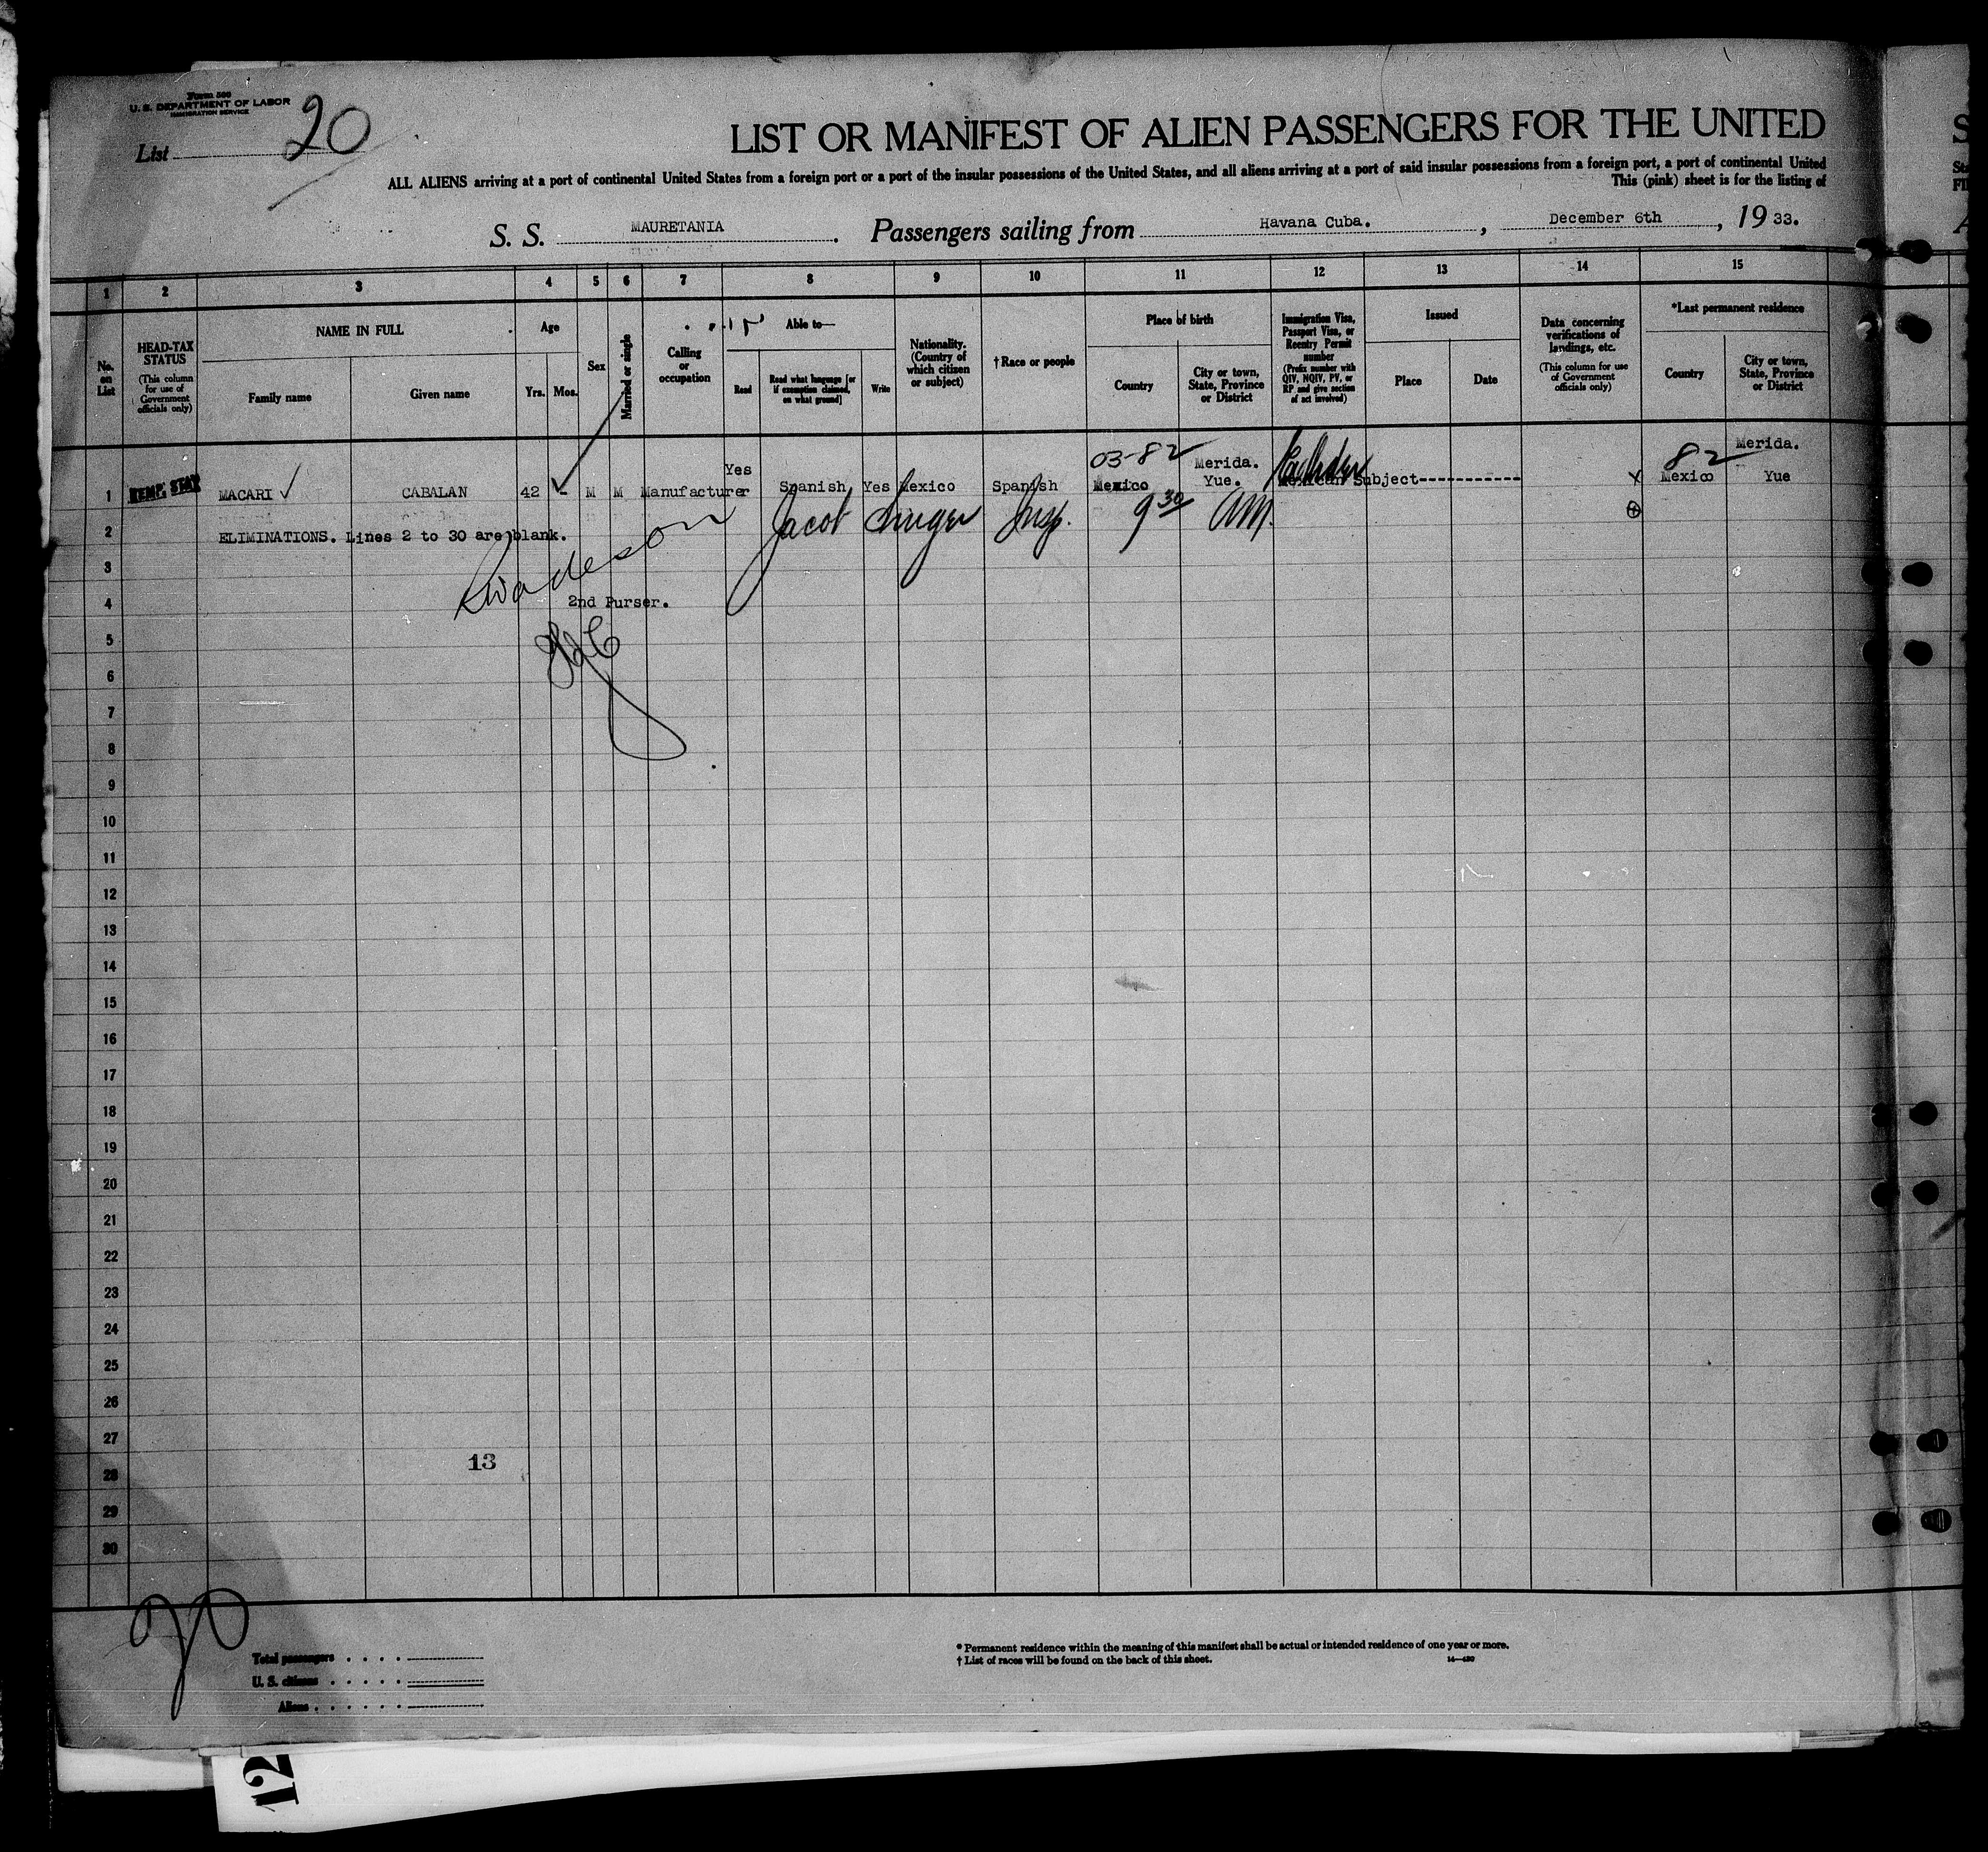 Form 500
U. S. DEPARTMENT OF LABOR
IMMIGRATION SERVICE
List 20
LIST OR MANIFEST OF ALIEN PASSENGERS FOR THE UNITED
ALL ALIENS arriving at a port of continental United States from a foreign port or a port of the insular possessions of the United States, and all aliens arriving at a port of said insular possessions from a foreign port, a port of continental United
This (pink) sheet is for the listing of
S. S. MAURETANIA . Passengers sailing from Havana Cuba. , December 6th , 19 33.
1 2 3 4 5 6 7 8 9 10 11 12 13 14 15
No. on List
HEAD-TAX STATUS
(This column for use of Government officials only)
NAME IN FULL
Family name
Given name
Age
Yrs. Mos.
Sex
Married or single
Calling or occupation
Able to—
Read
Read what language [or if exemption claimed, on what ground]
Write
Nationality. (Country of which citizen or subject)
†Race or people
Place of birth
Country
City or town, State, Province or District
Immigration Visa, Passport Visa, or Reentry Permit number
(Prefix number with QIV, NQIV, PV, or RP and give section of act involved)
Issued
Place
Date
Data concerning verifications of landings, etc.
(This column for use of Government officials only)
*Last permanent residence
Country
City or town, State, Province or District
03-82 82 Merida.
Yes Merida.
1 TEMP. STAY MACARI ✓ CABALAN 42 - M M Manufacturer Spanish Yes Mexico Spanish Mexico Yue. Mexican Subject------------ x Mexico Yue
Jacob Insp. 9 30 AM.
2 ELIMINATIONS. Lines 2 to 30 are blank.
3
4 2nd Purser.
5
6
7
8
9
10
11
12
13
14
15
16
17
18
19
20
21
22
23
24
25
26
27
13
28
29
30
20
Total passengers
U. S. citizens
Aliens
* Permanent residence within the meaning of this manifest shall be actual or intended residence of one year or more.
† List of races will be found on the back of this sheet.
14—430
12